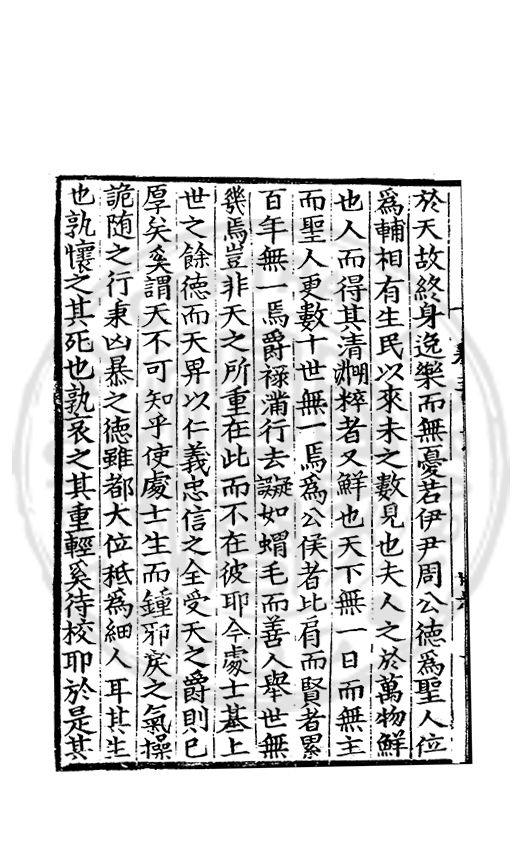 於天故終身逸樂而無憂若伊尹周公德為聖人位
為輔相有生民以來未之數見也夫人之於萬物鮮
也人而得其清淵粹者又鮮也天下無一日而無主
而聖人更數十世無一焉為公侯者比肩而賢者累
百年無一焉爵祿滿行去譺如蝟毛而善人舉世無
幾焉豈非天之所重在此而不在彼耶今處士基上
世之餘德而天畀以仁義忠信之全受天之爵則已
厚矣奚謂天不可知乎使處士生而鍾邪戾之氣操
詭随之行秉凶暴之德雖都大位秪為細人耳其生
也孰懷之其死也孰哀之其重輕奚待校耶於是其